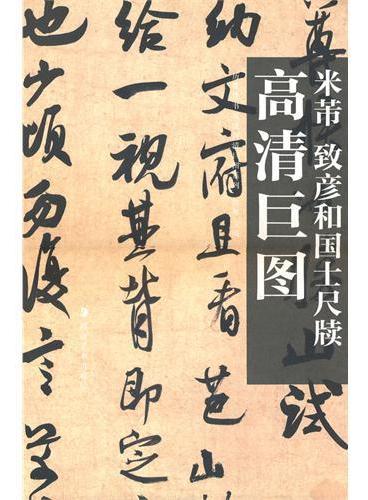 米芾 致彦和国士尺牍
高清巨图
尊
山試
納文府且看芭山
給一視其背即定
也少頃勿復言芾